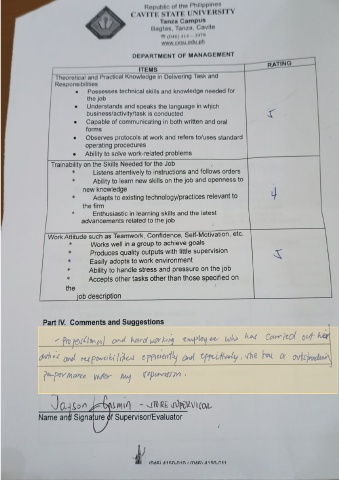 Republic of the Philippines
CAVITE STATE UNIVERSITY
Tanza Campus
Bagtas, Tanza, Cavite
www.cvsu.edu.ph
DEPARTMENT OF MANAGEMENT
ITEMS RATING
Theoretical and Practical Knowledge in Delivering Task and
Responsibilities
• Possesses technical skills and knowledge needed for
the job
• Understands and speaks the language in which
business/activity/task is conducted
• Capable of communicating in both written and oral
forms
• Observes protocols at work and refers to/uses standard
operating procedures
• Ability to solve work-related problems
5
Trainability on the Skills Needed for the Job
* Listens attentively to instructions and follows orders
* Ability to learn new skills on the job and openness to
new knowledge
* Adapts to existing technology/practices relevant to
the firm
* Enthusiastic in learning skills and the latest
advancements related to the job
4
Work Attitude such as Teamwork, Confidence, Self-Motivation, etc.
* Works well in a group to achieve goals
* Produces quality outputs with little supervision
* Easily adopts to work environment
* Ability to handle stress and pressure on the job
* Accepts other tasks other than those specified on
the
job description
5
Part IV. Comments and Suggestions
- Professional and hardworking employee who has carried out her
duties and responsibilities efficiently and effectively. She has a outstanding
performance under my supervision.
Jayson Gasmin - STORE SUPERVISOR
Name and Signature of Supervisor/Evaluator